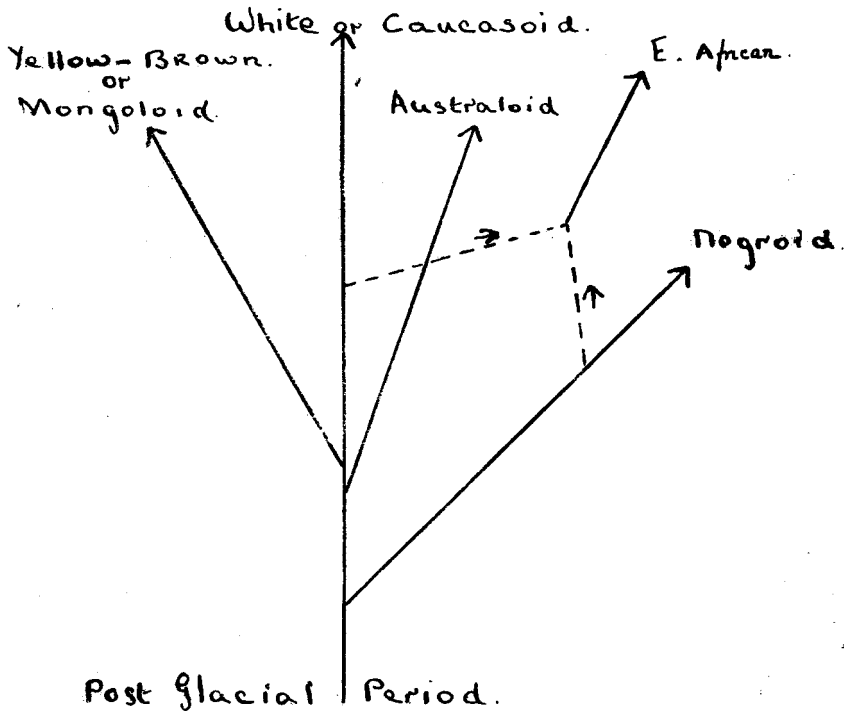 White or Caucasoid.
Yellow-Brown.
or
Mongoloid.
Australoid
E. African.
Negroid.
Post Glacial Period.